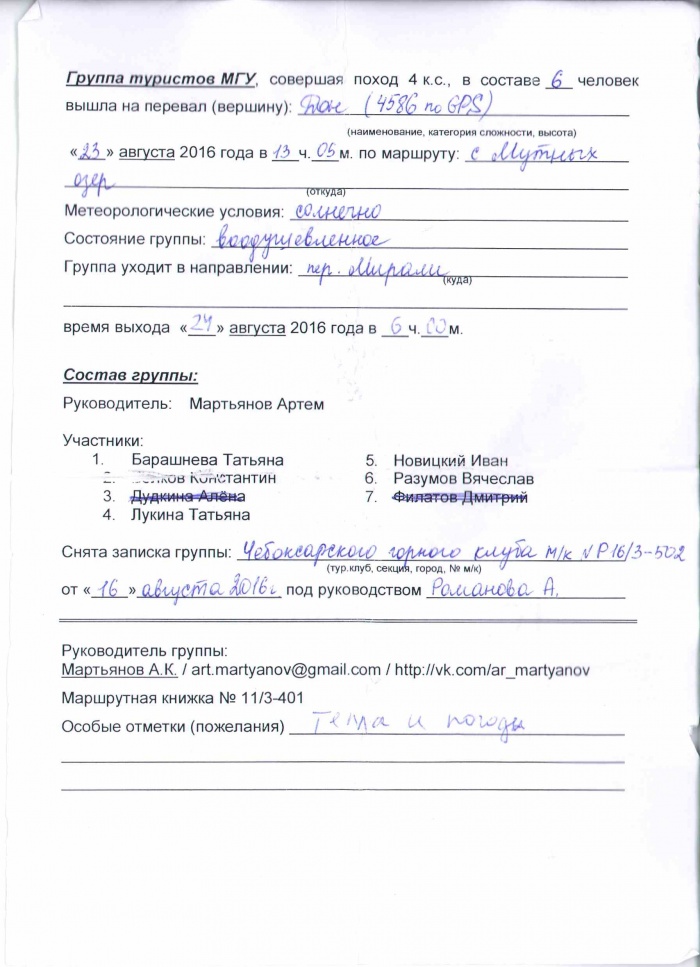 Группа туристов МГУ, совершая поход 4 к.с., в составе 6 человек
вышла на перевал (вершину): Дон (4586 по GPS)
(наименование, категория сложности, высота)
«23» августа 2016 года в 13 ч. 05 м. по маршруту: с Мутных
озер
(откуда)
Метеорологические условия: солнечно
Состояние группы: воодушевленное
Группа уходит в направлении: пер. Мирали
(куда)
время выхода «24» августа 2016 года в 6 ч. 00 м.
Состав группы:
Руководитель: Мартьянов Артем
Участники:
1. Барашнева Татьяна 5. Новицкий Иван
2. Константин 6. Разумов Вячеслав
3. Дудкина Алёна 7. Филатов Дмитрий
4. Лукина Татьяна
Снята записка группы: Чебоксарского горного клуба м/к №Р16/3-502
(тур.клуб, секция, город, № м/к)
от «16» августа 2016г под руководством Романова А.
Руководитель группы:
Мартьянов А.К. / art.martyanov@gmail.com / http://vk.com/ar_martyanov
Маршрутная книжка № 11/3-401
Особые отметки (пожелания) Тепла и погоды